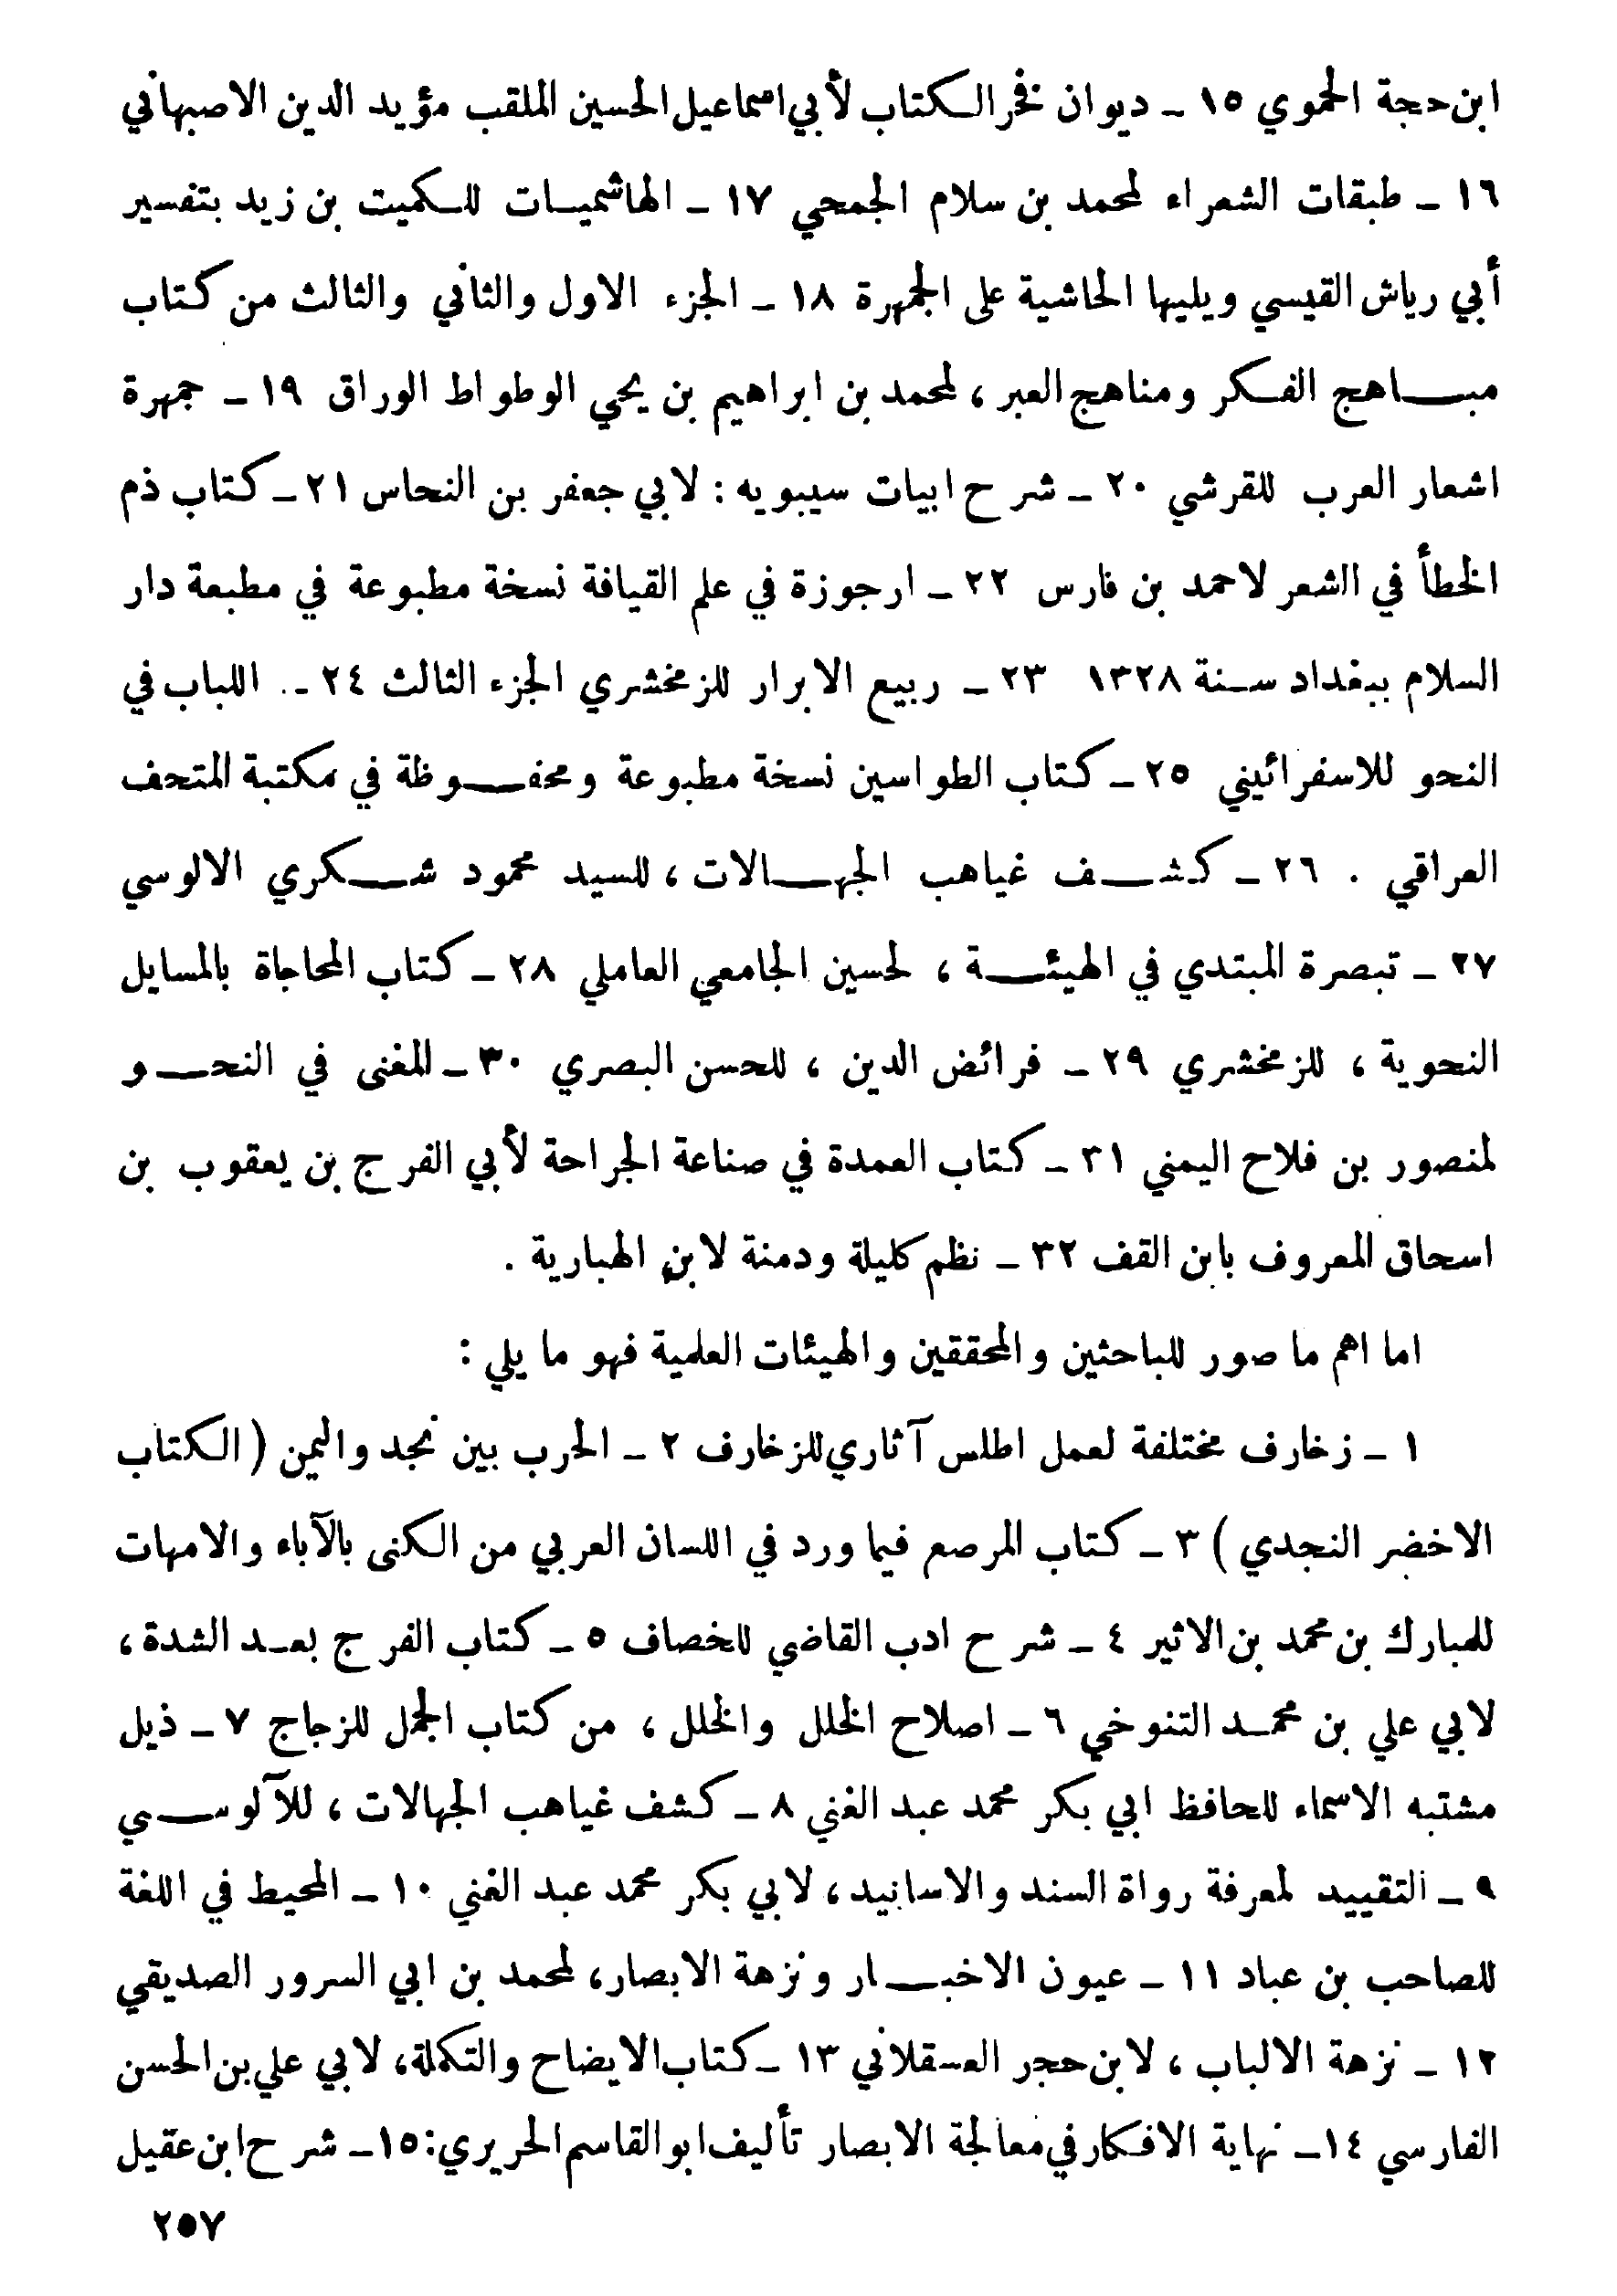 ابن حجة الحموي ١٥ ـ ديوان فخر الكتاب لأبي اسماعيل الحسين الملقب مؤيد الدين الاصبهاني
١٦ ـ طبقات الشعراء لمحمد بن سلام الجمحي ١٧ ـ الهاشميات للكميت بن زيد بتفسير
أبي رياش القيسي ويليها الحاشية على الجمهرة ١٨ ـ الجزء الاول والثاني والثالث من كتاب
مباهج الفكر ومناهج العبر ، لمحمد بن ابراهيم بن يحي الوطواط الوراق ١٩ ـ جمهرة
اشعار العرب للقرشي ٢٠ ـ شرح ابيات سيبويه : لابي جعفر بن النحاس ٢١ ـ كتاب ذم
الخطأ في الشعر لاحمد بن فارس ٢٢ ـ ارجوزة في علم القيافة نسخة مطبوعة في مطبعة دار
السلام ببغداد سنة ١٣٢٨ ٢٣ ـ ربيع الابرار للزمخشري الجزء الثالث ٢٤ ـ. اللباب في
النحو للاسفرائيني ٢٥ ـ كتاب الطواسين نسخة مطبوعة ومحفوظة في مكتبة المتحف
العراقي . ٢٦ ـ كشف غياهب الجهالات ، للسيد محمود شكري الالوسي
٢٧ ـ تبصرة المبتدي في الهيئة ، لحسين الجامعي العاملي ٢٨ ـ كتاب المحاجاة بالمسايل
النحوية ، للزمخشري ٢٩ ـ فرائض الدين ، للحسن البصري ٣٠ ـ المغنى في النحو
لمنصور بن فلاح اليمني ٣١ ـ كتاب العمدة في صناعة الجراحة لأبي الفرج بن يعقوب بن
اسحاق المعروف بابن القف ٣٢ ـ نظم كليلة ودمنة لابن الهبارية .
اما اهم ما صور للباحثين والمحققين والهيئات العلمية فهو ما يلي :
١ ـ زخارف مختلفة لعمل اطلس آثاري للزخارف ٢ ـ الحرب بين نجد واليمن ( الكتاب
الاخضر النجدي ) ٣ ـ كتاب المرصع فيما ورد في اللسان العربي من الكنى بالآباء والامهات
للمبارك بن محمد بن الاثير ٤ ـ شرح ادب القاضي للخصاف ٥ ـ كتاب الفرج بعد الشدة ،
لابي علي بن محمد التنوخي ٦ ـ اصلاح الخلل والخلل ، من كتاب الجمل للزجاج ٧ ـ ذيل
مشتبه الاسماء للحافظ ابي بكر محمد عبد الغني ٨ ـ كشف غياهب الجهالات ، للآلوسي
٩ ـ التقييد لمعرفة رواة السند والاسانيد ، لابي بكر محمد عبد الغني ١٠ ـ المحيط في اللغة
للصاحب بن عباد ١١ ـ عيون الاخبار ونزهة الابصار، لمحمد بن ابي السرور الصديقي
١٢ ـ نزهة الالباب ، لابن حجر العسقلاني ١٣ ـ كتاب الايضاح والتكملة، لابي علي بن الحسن
الفارسي ١٤ـ نهاية الافكار في معالجة الابصار تأليف ابو القاسم الحريري: ١٥ـ شرح ابن عقيل
٢٥٧